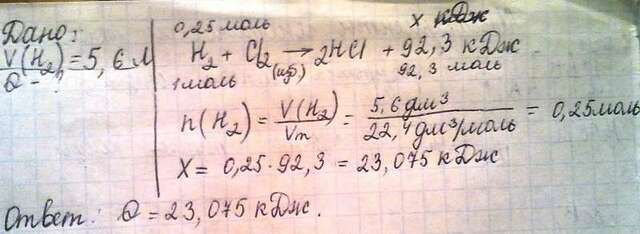 Дано:
V(H₂) = 5,6 л
Q - ?
0,25 моль
x кДж
H₂ + Cl₂ (изб) → 2HCl + 92,3 кДж
1 моль
92,3 моль
n(H₂) = V(H₂)/Vm = 5,6 дм³/22,4 дм³/моль = 0,25 моль
X = 0,25·92,3 = 23,075 кДж
Ответ: Q = 23,075 кДж.